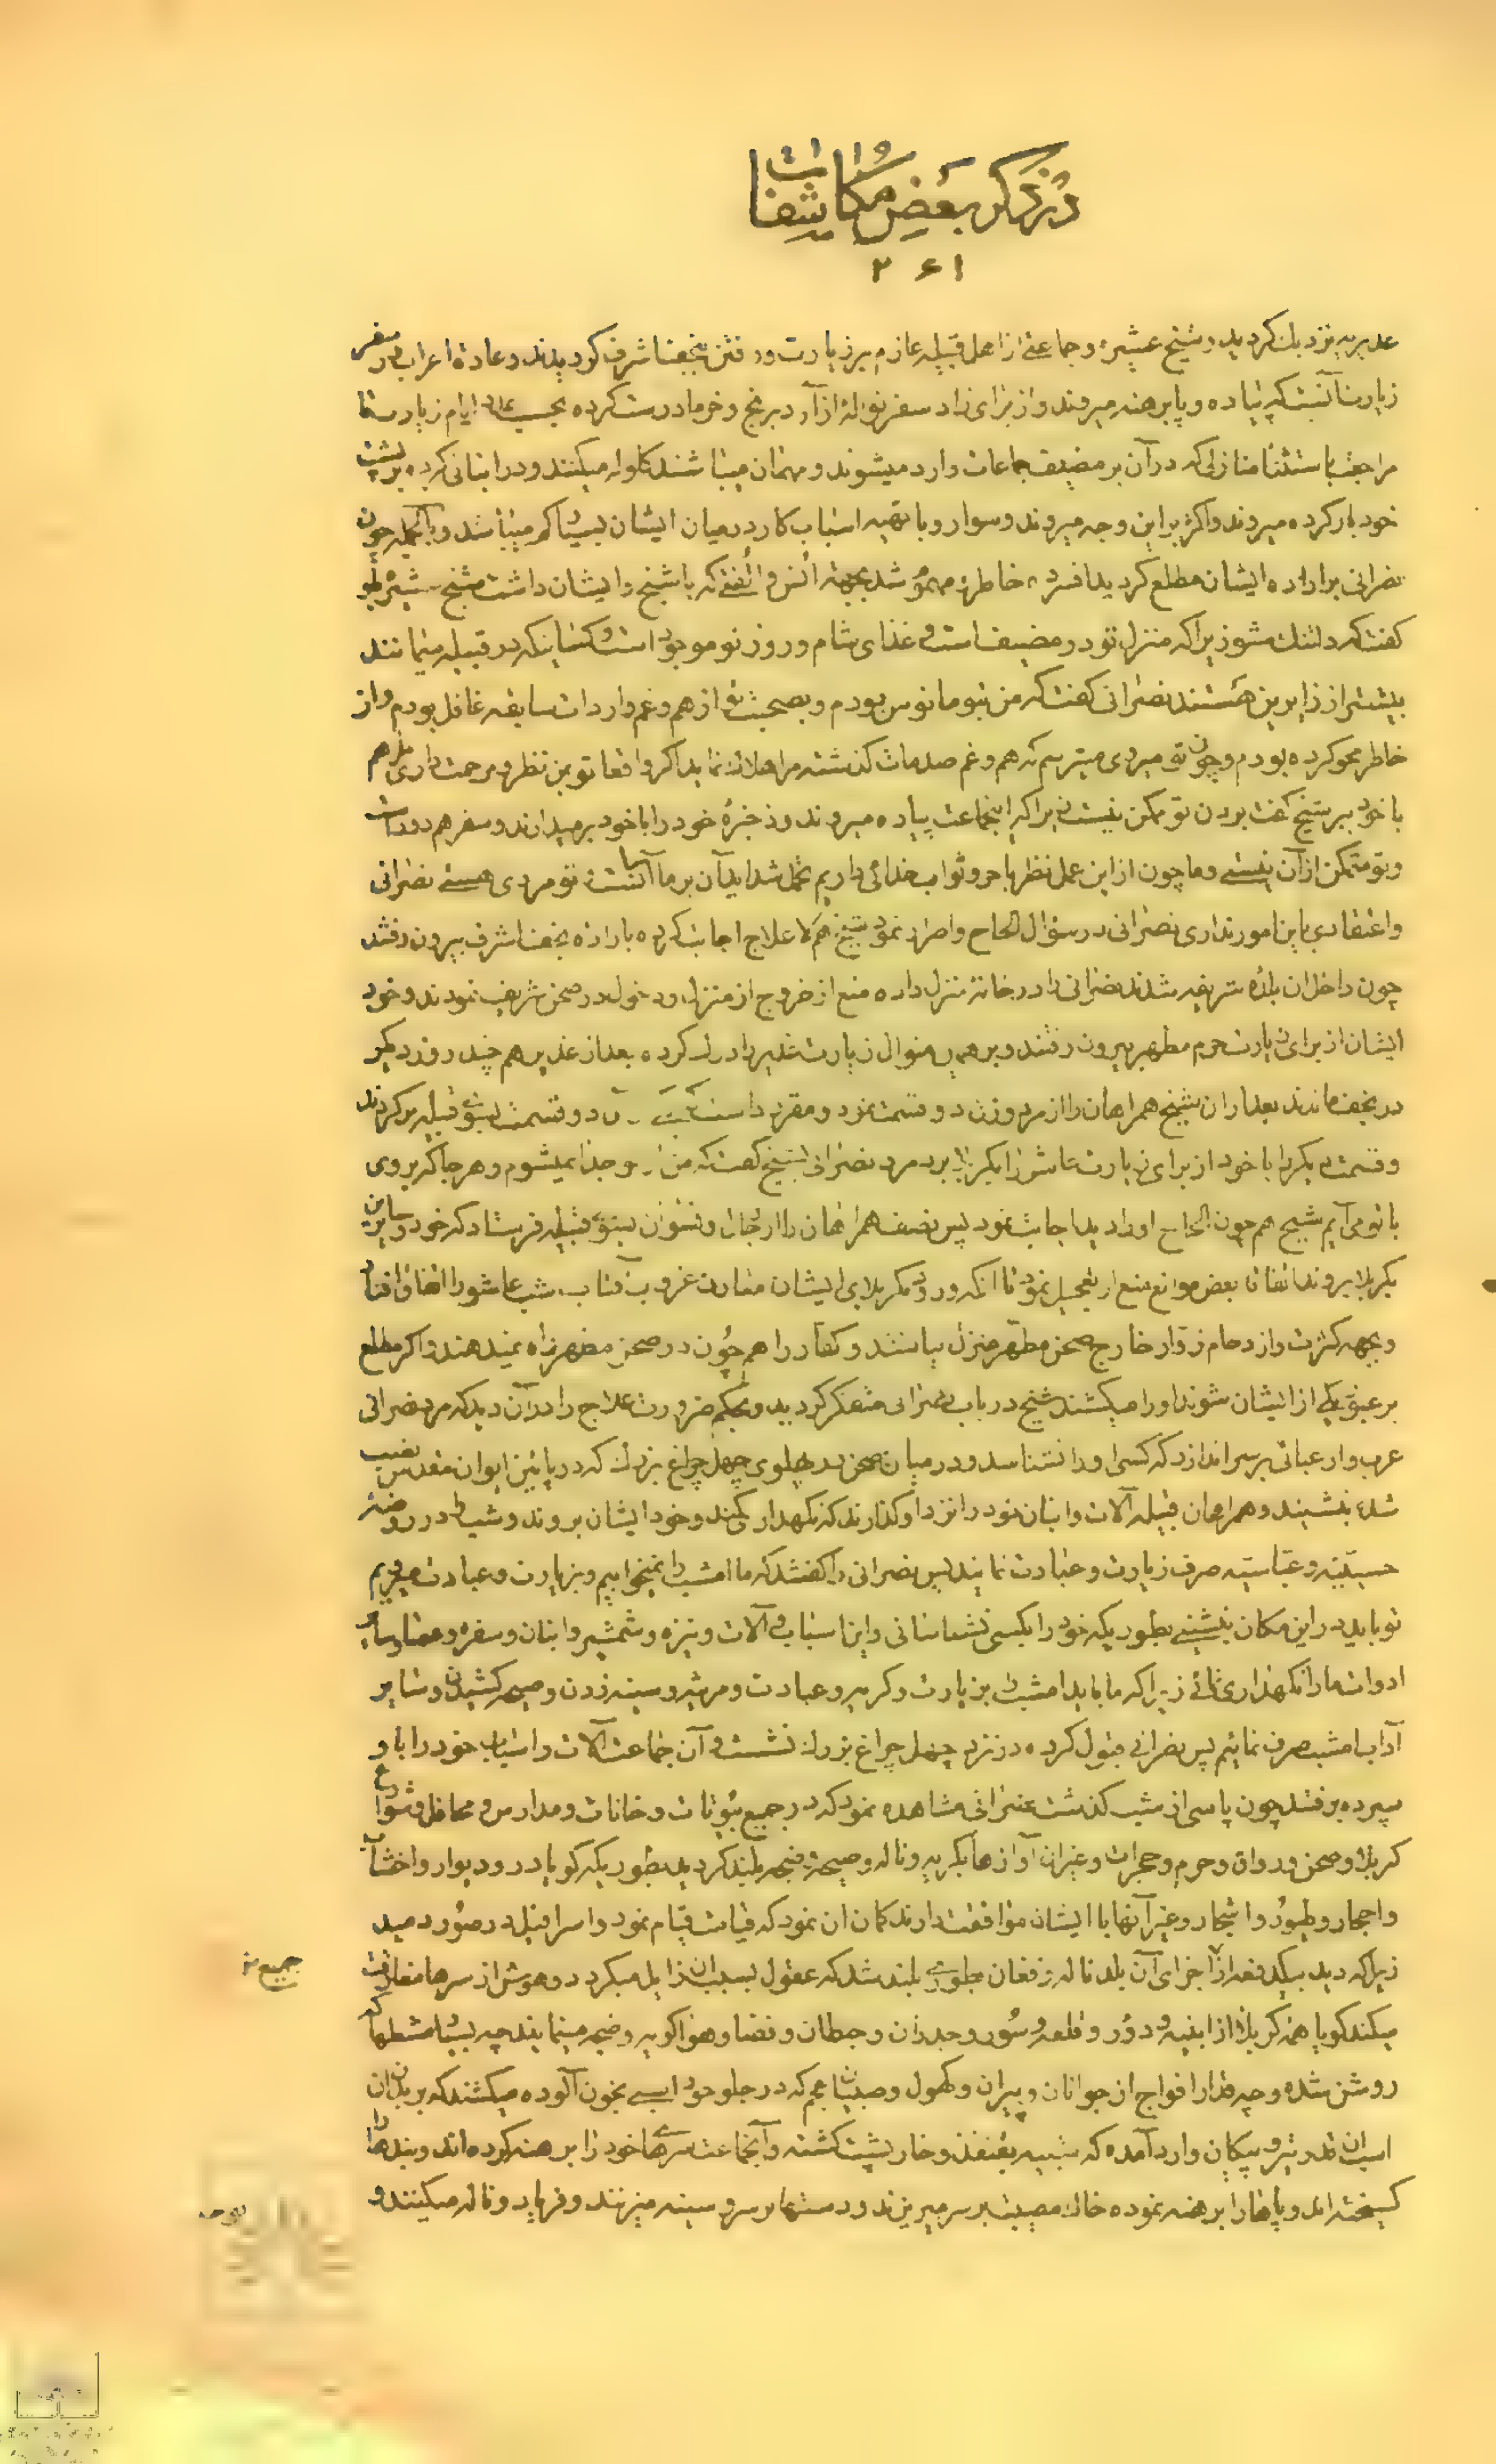 در ذکر بعض مکاشفات
۲۶۱
غدیریه نزدیك کردید و شیخ عشیره و جماعتی از اهل قبیله عازم بر زیارت و رفتن نجف اشرف کردیدند و عادة اعراب در سفر
زیارت آنست که پیاده و پابرهنه میروند و از برای زاد سفر نواله از آرد برنج و خرما درست کرده بحسب ایام زیارت تا
مراجعت باستثنا منازلی که در آن بر مضیف جماعات وارد میشوند و مهمان میباشند کلوله میکنند و در انبانی کرده بر پشت
خود بار کرده میروند و اکثر براین وجه میروند و سوار و با تهیه اسباب کار در میان ایشان بسیار کم میباشد و بالجمله چون
نصرانی بر اراده ایشان مطلع کردید افسرده خاطر و مهموم شد بجهة انس و الفتی که با شیخ و ایشان داشت شیخ عشیره باو
کفت که دلتنك مشو زیرا که منزل تو در مضیف است و غذای شام و روز تو موجود است و کسانیکه در قبیله میمانند
بیشتر از زایرین هستند نصرانی کفت که من بتو مانوس بودم و بصحبت تو از هم و غم واردات سابقه غافل بودم و از
خاطر محو کرده بودم و چون تو میروی میترسم که هم و غم صدمات کذشته مرا هلاك نماید اکر واقعا تو بمن نظر و مرحمت داری مرا هم
با خود ببر شیخ کفت بردن تو ممکن نیست زیرا که اینجماعت پیاده میروند و ذخیرۀ خود را با خود برمیدارند و سفر هم دور است
و تو متمکن از آن نیستی و ما چون از این عمل نظر باجر و ثواب خدائی داریم تحمل شداید آن بر ما آسان است و تو مردی هستی نصرانی
و اعتقادی باین امور نداری نصرانی در سؤال الحاح و اصرار نمود شیخ هم لاعلاج اجابت کرده باراده نجف اشرف بیرون رفتند
چون داخل ان بلدۀ شریفه شدند نصرانی را در خانۀ منزل داده منع از خروج از منزل و دخول در صحن شریف نمودند و خود
ایشان از برای زیارت حرم مطهر بیرون رفتند و بر همین منوال زیارت غدیر را درك کرده بعد از غدیر هم چند روز دیکر
در نجف ماندند بعد از ان شیخ همراهان را از مرد و زن دو قسمت نمود و مقرر داشت قسمت بسوی قبیله برکردند
و قسمت دیکر را با خود از برای زیارت عاشورا بکربلا برد مرد نصرانی بشیخ کفت که من از تو جدا نمیشوم و هر جا که بروی
با تو می‌آیم شیخ هم چون الحاح او را دید اجابت نمود پس نصف همراهان را از رجال و نسوان بسوی قبیله فرستاد که خود و سایرین
بکربلا بروند اتفاقا بعض موانع منع از تعجیل نمود تا انکه ورود بکربلای ایشان مقارن غروب آفتاب شب عاشورا اتفاق افتاد
و بجهة کثرت و ازدحام زوّار خارج صحن مطهّر منزل باشند و کفّار را هم چون در صحن مطهر راه نمیدهند و اکر مطلع
بر عبور یکی از ایشان شوند او را میکشند شیخ در باب نصرانی متفکر کردید و بحکم ضرورت علاج را در آن دید که مرد نصرانی
عرب وار عبائی بر سر اندازد که کسی او را نشناسد و در میان صحن در پهلوی چهل چراغ بزرك که در پائین ایوان مقدس نصب
شده بنشیند و همراهان قبیله آلات و انبان خود را نزد او کذارند که نکهداری کند و خود ایشان بروند و شب را در روضۀ
حسینیّه و عبّاسیّه صرف زیارت و عبادت نمایند پس نصرانی را کفتند که ما امشب را نمیخوابیم و بزیارت و عبادت میرویم
تو باید در این مکان بنشینی بطوریکه خود را بکسی نشناسانی و این اسباب و آلات و نیزه و شمشیر و انبان و سفره و عصا و سایر
ادوات ما را نکهداری نمائی زیرا که ما باید امشب را بزیارت و کریه و عبادت و مرثیه و سینه زدن و صیحه کشیدن و سایر
آداب امشب صرف نمائیم پس نصرانی قبول کرده در نزد چهل چراغ بزرك نشست و آن جماعت آلات و اسباب خود را باو
سپرده برفتند چون پاسی از شب کذشت نصرانی مشاهده نمود که در جمیع بیوتات و خانات و مدارس و محافل و شوارع
کربلا و صحن و رواق و حرم و حجرات و غیران آوازها بکریه و ناله و صیحه و ضجه بلند کردید بطوریکه کویا در و دیوار و اخشاب
و احجار و طیور و اشجار و غیر آنها با ایشان موافقت دارند کمان ان نمود که قیامت قیام نمود و اسرافیل در صور دمید
زیرا که دید بیکدفعه از اجزای آن بلد ناله و فغان بطوری بلند شد که عقول بسبب ان زایل میکردد و هوش از سرها مفارقت
میکند کویا همۀ کربلا از ابنیه و دور و قلعه و سور و جدران و حیطان و فضا و هوا کریه و ضجه مینمایند چه بسیار مشعلها که
روشن شده و چه قدر افواج از جوانان و پیران و کهول و صبیان عجم که در جلو خود اسبی بخون آلوده میکشند که بر بدن ان
اسب ان قدر تیر و پیکان وارد آمده که شبیه بقنفذ و خارپشت کشته و آنجماعت سرهای خود را برهنه کرده اند و بندها را
کسیخته اند و پاها را برهنه نموده خاك مصیبت بر سر میریزند و دستها بر سر و سینه میزنند و فریاد و ناله میکنند و
جمیع